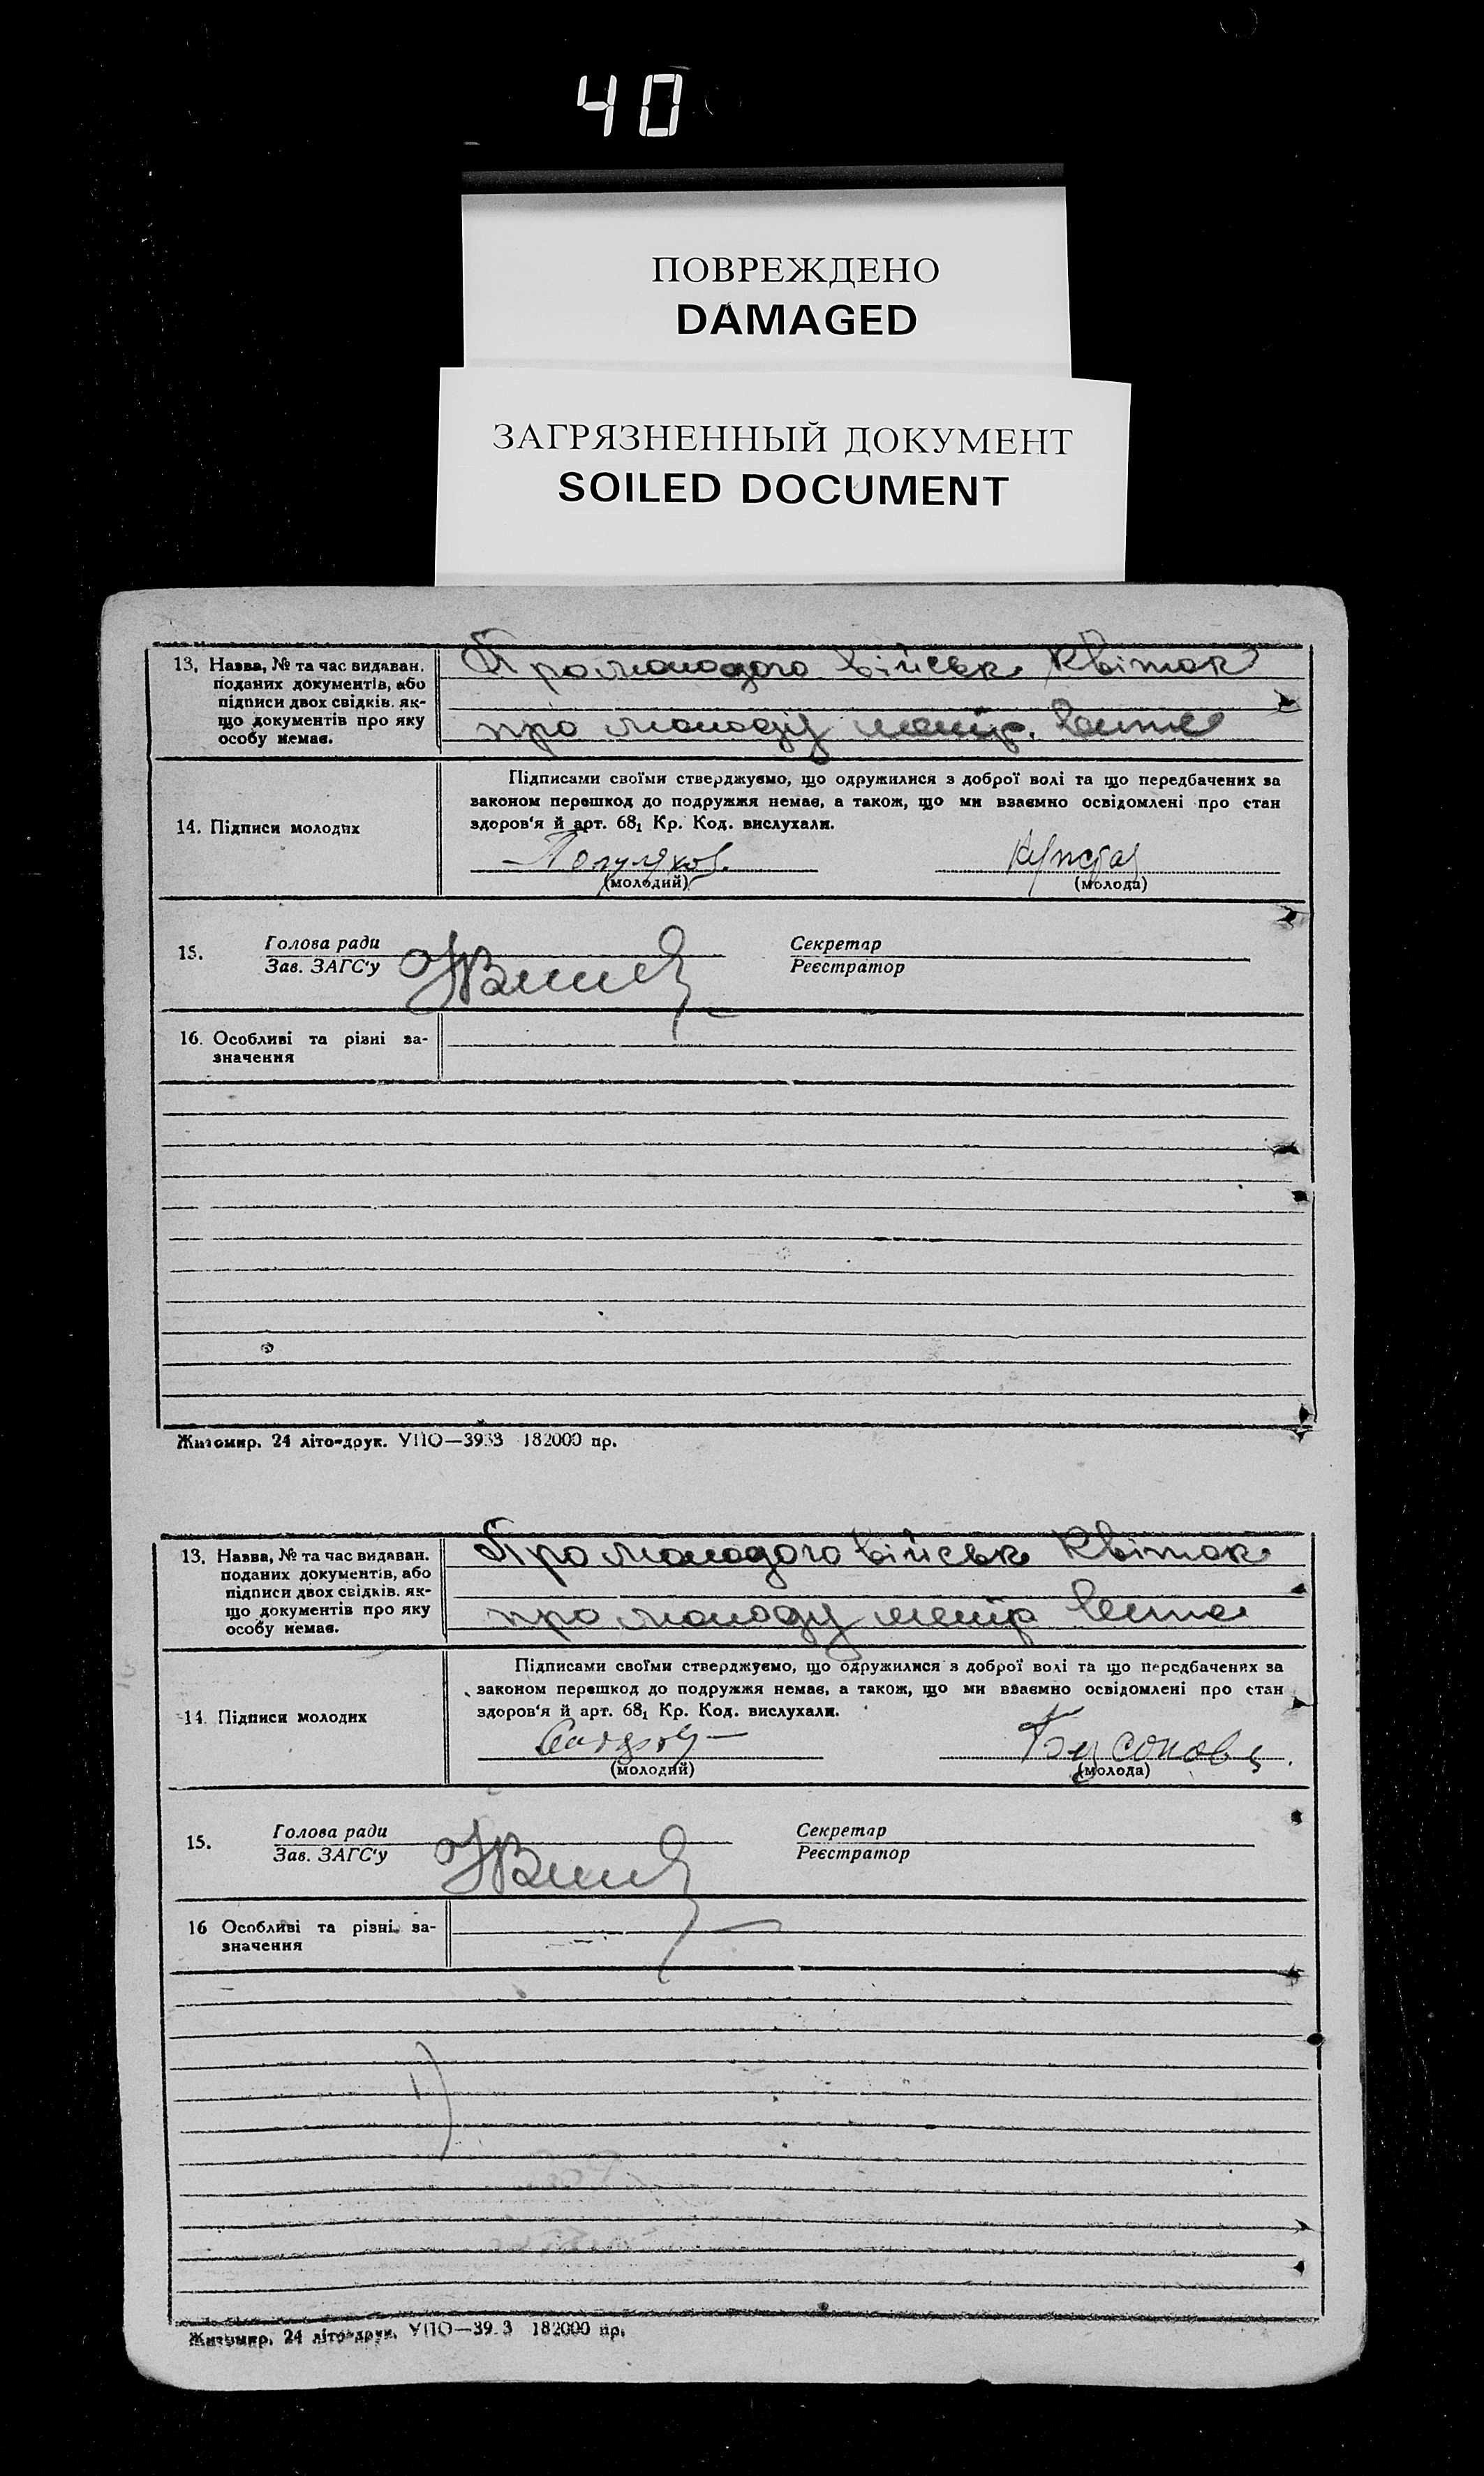 40
ПОВРЕЖДЕНО
DAMAGED
ЗАГРЯЗНЕННЫЙ ДОКУМЕНТ
SOILED DOCUMENT
13. Назва, № та час видаван.
поданих документів, або
підписи двох свідків, як-
що документів про яку
особу немає.
Про молодого військ квиток
про молоду
14. Підписи молодих
Підписами своїми стверджуємо, що одружилися з доброї волі та що передбачених за
законом перешкод до подружжя немає, а також, що ми взаємно освідомлені про стан
здоров'я й арт. 68₁ Кр. Код. вислухали.
(молодий)
(молода)
15.
Голова ради
Зав. ЗАГС'у
Секретар
Реєстратор
16. Особливі та різні за-
значення
Житомир. 24 літо-друк. УПО—3933 182000 пр.
13. Назва, № та час видаван.
поданих документів, або
підписи двох свідків. як-
що документів про яку
особу немає.
Про молодого військ квиток
про молоду
14. Підписи молодих
Підписами своїми стверджуємо, що одружилися з доброї волі та що передбачених за
законом перешкод до подружжя немає, а також, що ми взаємно освідомлені про стан
здоров'я й арт. 68₁ Кр. Код. вислухали.
(молодий)
(молода)
15.
Голова ради
Зав. ЗАГС'у
Секретар
Реєстратор
16 Особливі та різні за-
значення
Житомир. 24 літо-друк. УПО—39 3 182000 пр.